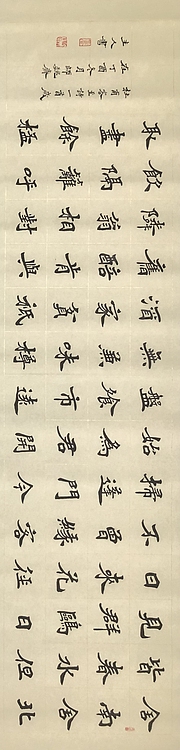 舍南舍北
皆春水但
見群鷗日
日來花徑
不曾緣客
掃蓬門今
始為君開
盤飧市遠
無兼味樽
酒家貧祇
舊醅肯與
鄰翁相對
飲隔籬呼
取盡餘桮
杜甫客至詩一首歲
在丁酉冬月師齋
主人書